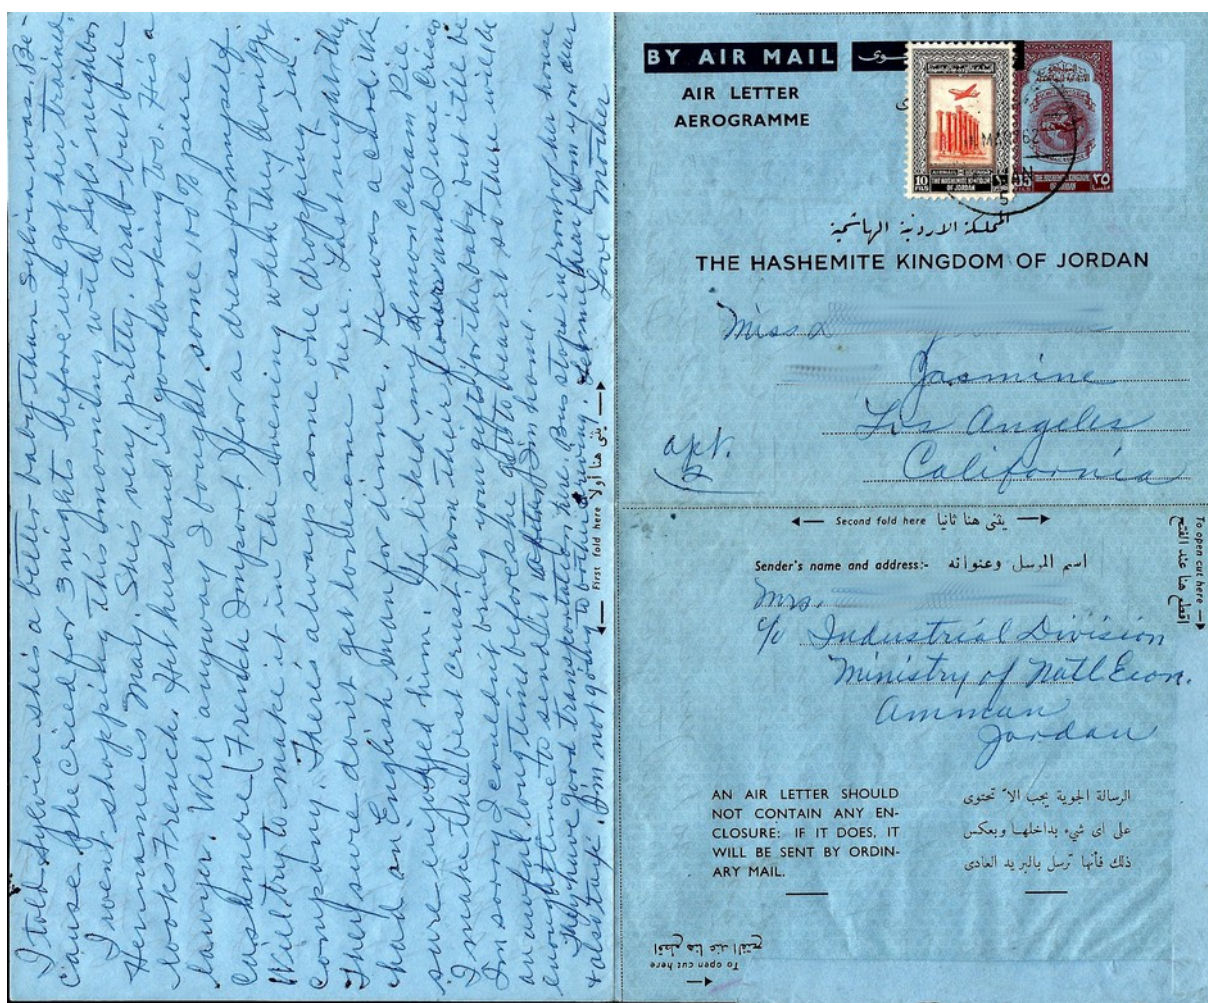 I told Sylvia she's a better baby than Sylvia was. Be-
cause she cried for 3 nights before we got her trained.
I went shopping this morning with Syl's neighbor
Her name is Mary. She's very pretty. Arab but she
looks French. Her husband is goodlooking too. He's a
lawyer. Well anyway I bought some 100% pure
cashmere (French Import) for a dress for myself.
Will try to make it in the evening when they don't get
company. There's always some one dropping in.
They sure don't get lonesome here. Last night they
had an English man for dinner. He was a card. We
sure enjoyed him. He liked my Lemon Cream Pie.
I make the best crust from their flour and I use Crisco
I'm sorry I couldn't bring your gifts for the baby but it will be
an awful long time before she gets to wear it so there will be
enough time to send it after I'm home.
They have good transportation here. Bus stops in front of her house
& also taxi. I'm not going to bother driving. Let me hear from you dear
Love Mother
First fold here يثنى هنا أولا
BY AIR MAIL
AIR LETTER
AEROGRAMME
10
FILS
THE HASHEMITE KINGDOM
OF JORDAN
٣٥
THE HASHEMITE KINGDOM
OF JORDAN
المملكة الاردنية الهاشمية
THE HASHEMITE KINGDOM OF JORDAN
Miss
Jasmine
Los Angeles
California
apt.
2
Second fold here يثنى هنا ثانيا
To open cut here
اقطع هنا عند الفتح
Sender's name and address:- اسم المرسل وعنوانه
Mrs.
c/o Industrial Division
Ministry of Natl Econ.
Amman
Jordan
AN AIR LETTER SHOULD
NOT CONTAIN ANY EN-
CLOSURE: IF IT DOES, IT
WILL BE SENT BY ORDIN-
ARY MAIL.
الرسالة الجوية يجب الا تحتوى
على اى شيء بداخلها وبعكس
ذلك فأنها ترسل بالبريد العادى
اقطع هنا عند الفتح
To open cut here